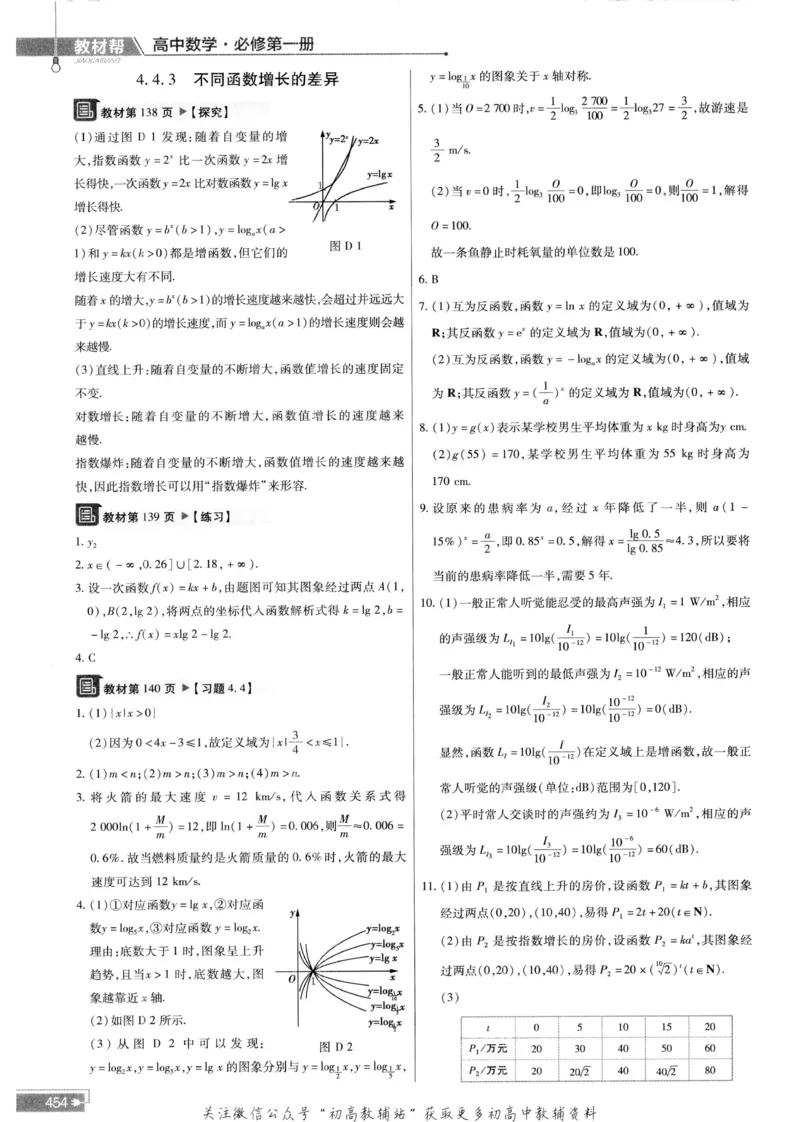 教材帮 高中数学·必修第一册
JIAOCAIBANG
4.4.3 不同函数增长的差异
教材第 138 页 ▶【探究】
(1)通过图 D 1 发现:随着自变量的增
大,指数函数 y=2ˣ 比一次函数 y=2x 增
长得快,一次函数 y=2x 比对数函数 y=lg x
增长得快.
(2)尽管函数 y=bˣ(b>1),y=logₐx(a>
1)和 y=kx(k>0)都是增函数,但它们的
增长速度大有不同.
y
y=2ˣ
y=2x
y=lg x
1
O
1
x
图 D 1
随着 x 的增大,y=bˣ(b>1)的增长速度越来越快,会超过并远远大
于 y=kx(k>0)的增长速度,而 y=logₐx(a>1)的增长速度则会越
来越慢.
(3)直线上升:随着自变量的不断增大,函数值增长的速度固定
不变.
对数增长:随着自变量的不断增大,函数值增长的速度越来
越慢.
指数爆炸:随着自变量的不断增大,函数值增长的速度越来越
快,因此指数增长可以用“指数爆炸”来形容.
教材第 139 页 ▶【练习】
1. y₂
2. x∈(-∞,0.26]∪[2.18,+∞).
3. 设一次函数 f(x)=kx+b,由题图可知其图象经过两点 A(1,
0),B(2,lg 2),将两点的坐标代入函数解析式得 k=lg 2,b=
-lg 2,∴f(x)=xlg 2-lg 2.
4. C
教材第 140 页 ▶【习题 4.4】
1. (1){x|x>0}
(2)因为 0<4x-3≤1,故定义域为{x|3/4<x≤1}.
2. (1)m<n;(2)m>n;(3)m>n;(4)m>n.
3. 将火箭的最大速度 v=12 km/s,代入函数关系式得
2 000ln(1+M/m)=12,即 ln(1+M/m)=0.006,则M/m≈0.006=
0.6%.故当燃料质量约是火箭质量的 0.6%时,火箭的最大
速度可达到 12 km/s.
4. (1)①对应函数 y=lg x,②对应函
数 y=log₅x,③对应函数 y=log₂x.
理由:底数大于 1 时,图象呈上升
趋势,且当 x>1 时,底数越大,图
象越靠近 x 轴.
(2)如图 D 2 所示.
(3)从图 D 2 中可以发现:
y
y=log₂x
y=log₅x
y=lg x
O
1
x
y=log_{1/10}x
y=log_{1/5}x
y=log_{1/2}x
图 D 2
y=log₂x,y=log₅x,y=lg x 的图象分别与 y=log_{1/2}x,y=log_{1/5}x,
y=log_{1/10}x 的图象关于 x 轴对称.
5. (1)当 O=2 700 时,v=1/2 log₃ 2 700/100=1/2 log₃27=3/2,故游速是
3/2 m/s.
(2)当 v=0 时,1/2 log₃ O/100=0,即 log₃ O/100=0,则O/100=1,解得
O=100.
故一条鱼静止时耗氧量的单位数是 100.
6. B
7. (1)互为反函数,函数 y=ln x 的定义域为(0,+∞),值域为
R;其反函数 y=eˣ 的定义域为 R,值域为(0,+∞).
(2)互为反函数,函数 y=-logₐx 的定义域为(0,+∞),值域
为 R;其反函数 y=(1/a)ˣ 的定义域为 R,值域为(0,+∞).
8. (1)y=g(x)表示某学校男生平均体重为 x kg 时身高为y cm.
(2)g(55)=170,某学校男生平均体重为 55 kg 时身高为
170 cm.
9. 设原来的患病率为 a,经过 x 年降低了一半,则 a(1-
15%)ˣ=a/2,即 0.85ˣ=0.5,解得 x=lg 0.5/lg 0.85≈4.3,所以要将
当前的患病率降低一半,需要 5 年.
10. (1)一般正常人听觉能忍受的最高声强为 I₁=1 W/m²,相应
的声强级为 L_{I₁}=10lg(I₁/10⁻¹²)=10lg(1/10⁻¹²)=120(dB);
一般正常人能听到的最低声强为 I₂=10⁻¹² W/m²,相应的声
强级为 L_{I₂}=10lg(I₂/10⁻¹²)=10lg(10⁻¹²/10⁻¹²)=0(dB).
显然,函数 L_I=10lg(I/10⁻¹²)在定义域上是增函数,故一般正
常人听觉的声强级(单位:dB)范围为[0,120].
(2)平时常人交谈时的声强约为 I₃=10⁻⁶ W/m²,相应的声
强级为 L_{I₃}=10lg(I₃/10⁻¹²)=10lg(10⁻⁶/10⁻¹²)=60(dB).
11. (1)由 P₁ 是按直线上升的房价,设函数 P₁=kt+b,其图象
经过两点(0,20),(10,40),易得 P₁=2t+20(t∈N).
(2)由 P₂ 是按指数增长的房价,设函数 P₂=kaᵗ,其图象经
过两点(0,20),(10,40),易得 P₂=20×(¹⁰√2)ᵗ(t∈N).
(3)
t 0 5 10 15 20
P₁/万元 20 30 40 50 60
P₂/万元 20 20√2 40 40√2 80
454
关注微信公众号“初高教辅站”获取更多初高中教辅资料